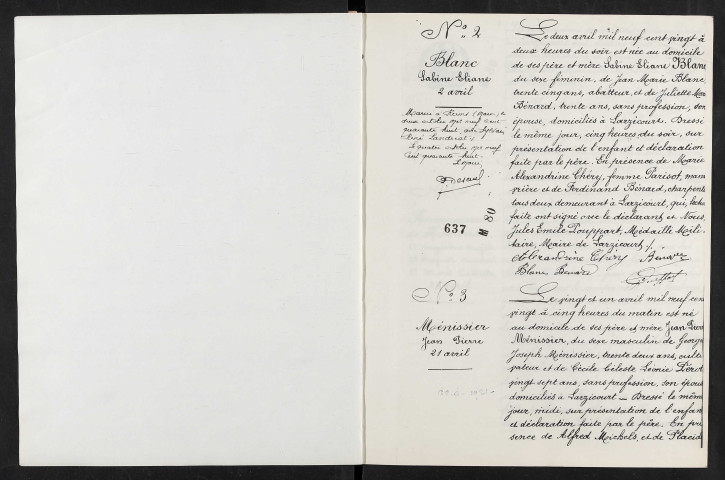 N° 2
Blanc
Sabine Eliane
2 avril
Mariée à Reims (Marne) le
deux octobre mil neuf cent
quarante huit avec
René
Le quatre octobre mil neuf
cent quarante huit.
637
M 80
Le deux avril mil neuf cent vingt à
deux heures du soir est née au domicile
de ses père et mère Sabine Eliane Blanc
du sexe féminin, de Jean Marie Blanc,
trente cinq ans, abatteur, et de Juliette
Bénard, trente ans, sans profession, son
épouse, domiciliés à Larzicourt. Dressé
le même jour, cinq heures du soir, sur
présentation de l'enfant et déclaration
faite par le père. En présence de Marie
Alexandrine Chéry, femme Parisot, mam
vrière et de Ferdinand Bénard, charpent
tous deux demeurant à Larzicourt, qui, lecture
faite ont signé avec le déclarant et Nous,
Jules Emile Pouppart, Médaillé Mili-
taire, Maire de Larzicourt /.
Alexandrine Chéry Bénard
Blanc Benard
N° 3
Ménissier
Jean Pierre
21 avril
Le vingt et un avril mil neuf cent
vingt à cinq heures du matin est né
au domicile de ses père et mère Jean Pierre
Ménissier, du sexe masculin de Georges
Joseph Ménissier, trente deux ans, culti
vateur et de Cécile Céleste Léonie
vingt sept ans, sans profession, son épouse
domiciliés à Larzicourt — Dressé le même
jour, midi, sur présentation de l'enfant
et déclaration faite par le père. En pré
sence de Alfred Michels, et de Placid